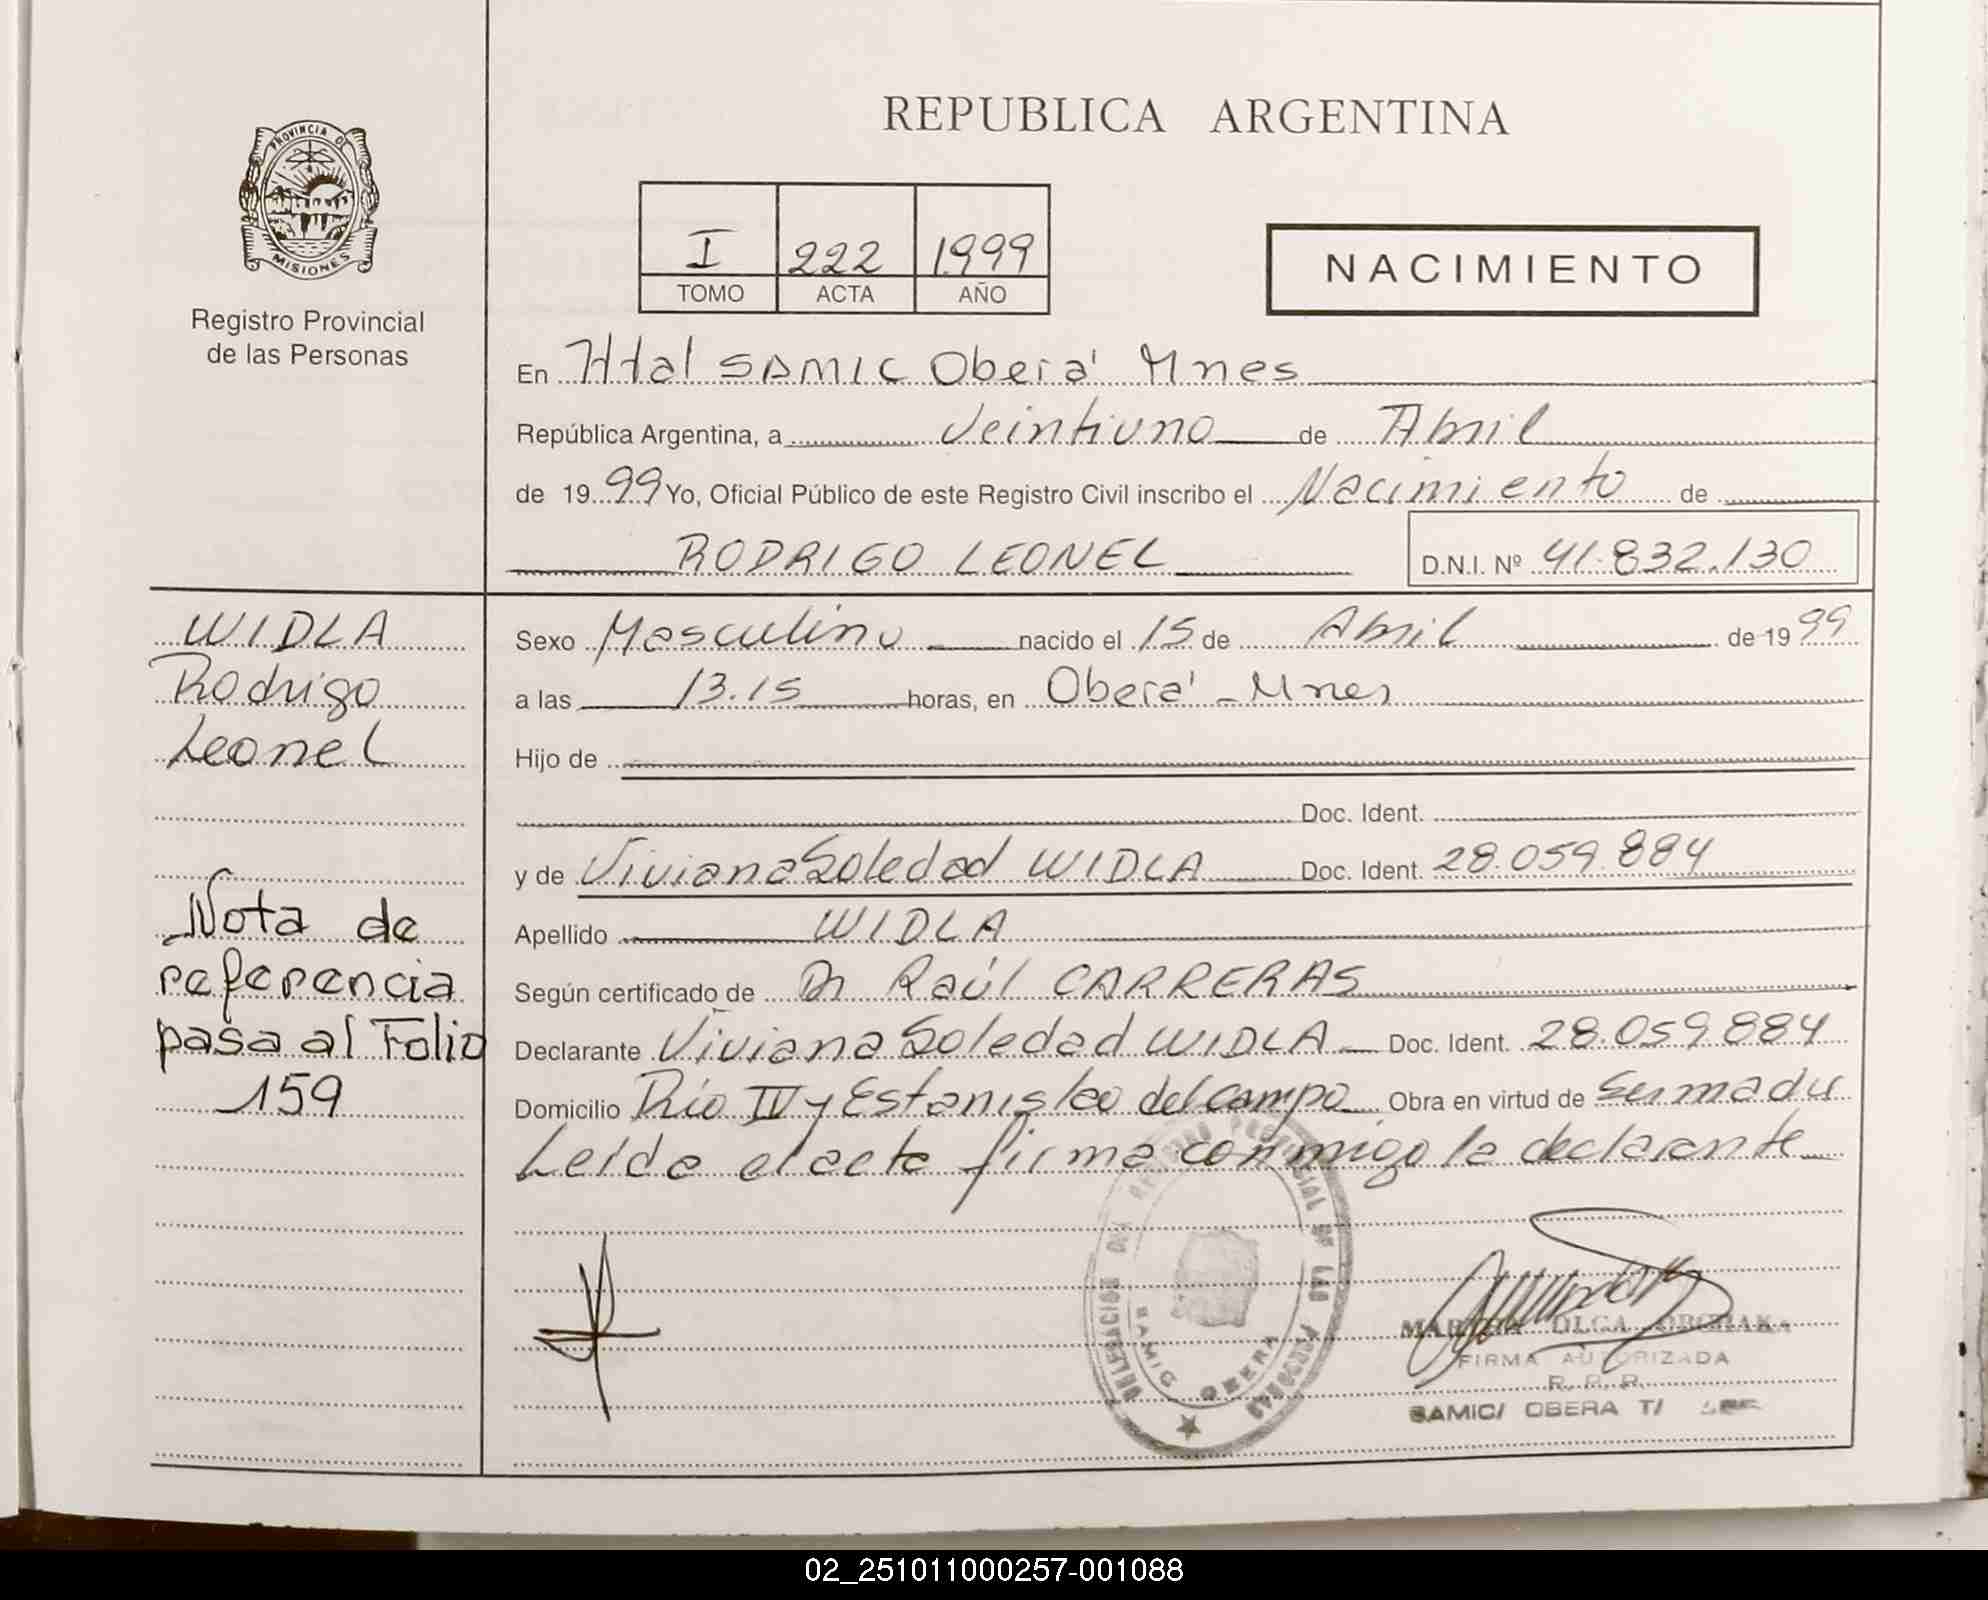 REPUBLICA ARGENTINA
PROVINCIA DE
MISIONES
Registro Provincial
de las Personas
I 222 1999
TOMO ACTA AÑO
NACIMIENTO
En Htal SAMIC Oberá Mnes
República Argentina, a veintiuno de Abril
de 1999 Yo, Oficial Público de este Registro Civil inscribo el Nacimiento de
RODRIGO LEONEL D.N.I. Nº 41.832.130
WIDLA
Rodrigo
Leonel
Nota de
referencia
pasa al Folio
159
Sexo Masculino nacido el 15 de Abril de 1999
a las 13.15 horas, en Oberá - Mnes
Hijo de
Doc. Ident.
y de Viviana Soledad WIDLA Doc. Ident. 28.059.884
Apellido WIDLA
Según certificado de Dr Raúl CARRERAS
Declarante Viviana Soledad WIDLA Doc. Ident. 28.059.884
Domicilio Río IV y Estanislao del campo Obra en virtud de Ser madre
Leída el acta firma conmigo la declarante
DELEGACION DEL REGISTRO PROVINCIAL DE LAS PERSONAS
SAMIC OBERA
OLGA
FIRMA AUTORIZADA
R. P. P.
SAMIC/ OBERA T/
02_251011000257-001088